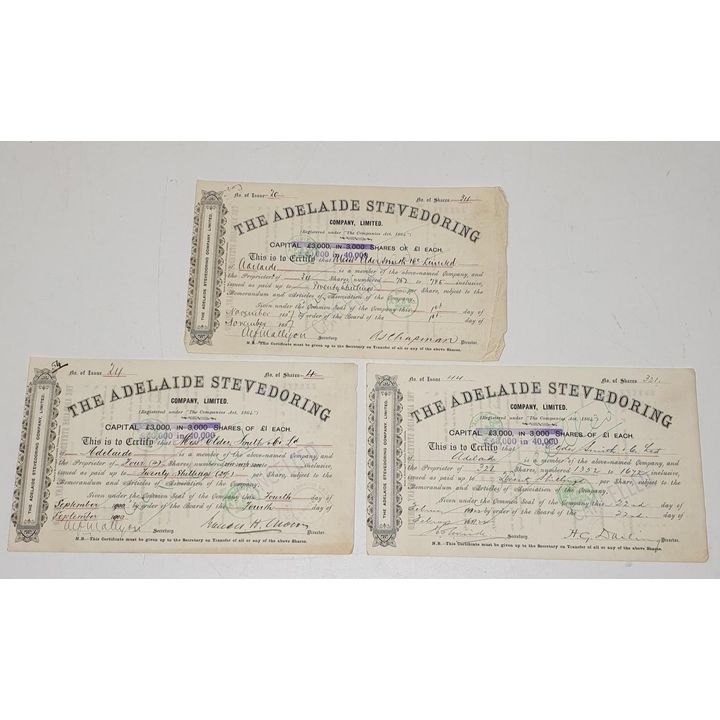 No. of Issue 20 No. of Shares 34
THE ADELAIDE STEVEDORING
COMPANY, LIMITED.
(Registered under "The Companies Act, 1864.")
CAPITAL £3,000, IN 3,000 SHARES OF £1 EACH.
in 40,000
This is to Certify that Elder Smith & Co Limited
of Adelaide is a member of the above-named Company, and
the Proprietor of 34 Shares numbered 752 to 785 inclusive,
issued as paid up to Twenty Shillings per Share, subject to the
Memorandum and Articles of Association of the Company.
Given under the Common Seal of the Company this 1st day of
November By order of the Board of the 1st day of
November
Secretary. A Chapman
N.B.—This Certificate must be given up to the Secretary on Transfer of all or any of the above Shares.
THE ADELAIDE STEVEDORING COMPANY, LIMITED.
No. of Issue 24 No. of Shares 4
THE ADELAIDE STEVEDORING
COMPANY, LIMITED.
(Registered under "The Companies Act, 1864.")
CAPITAL £3,000, IN 3,000 SHARES OF £1 EACH.
in 40,000
This is to Certify that Elder Smith & Co Ld
of Adelaide is a member of the above-named Company, and
the Proprietor of Four (4) Shares numbered inclusive,
issued as paid up to Twenty Shillings (20/-) per Share, subject to the
Memorandum and Articles of Association of the Company.
Given under the Common Seal of the Company this Fourth day of
September By order of the Board of the Fourth day of
September
Secretary. Director.
N.B.—This Certificate must be given up to the Secretary on Transfer of all or any of the above Shares.
THE ADELAIDE STEVEDORING COMPANY, LIMITED.
No. of Issue 44 No. of Shares 321
THE ADELAIDE STEVEDORING
COMPANY, LIMITED.
(Registered under "The Companies Act, 1864.")
CAPITAL £3,000, IN 3,000 SHARES OF £1 EACH.
in 40,000
This is to Certify that Elder Smith & Co Ltd
of Adelaide is a member of the above-named Company, and
the Proprietor of 321 Shares numbered 1352 to 1672 inclusive,
issued as paid up to Twenty Shillings per Share, subject to the
Memorandum and Articles of Association of the Company.
Given under the Common Seal of the Company this 22nd day of
By order of the Board of the 22nd day of
Secretary. H.G. Darling Director.
N.B.—This Certificate must be given up to the Secretary on Transfer of all or any of the above Shares.
THE ADELAIDE STEVEDORING COMPANY, LIMITED.